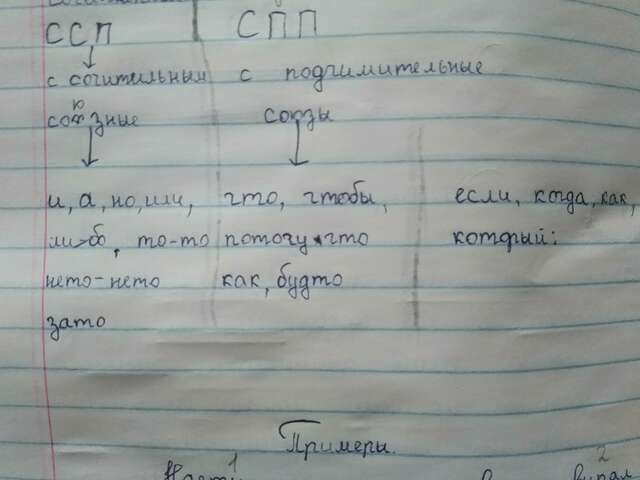 ССП СПП
с сочительным с подчимительные
союзные союзы
и, а, но, или, что, чтобы, если, когда, как,
либо, то-то потому что который:
нето-нето как, будто
зато
Примеры.
1 2